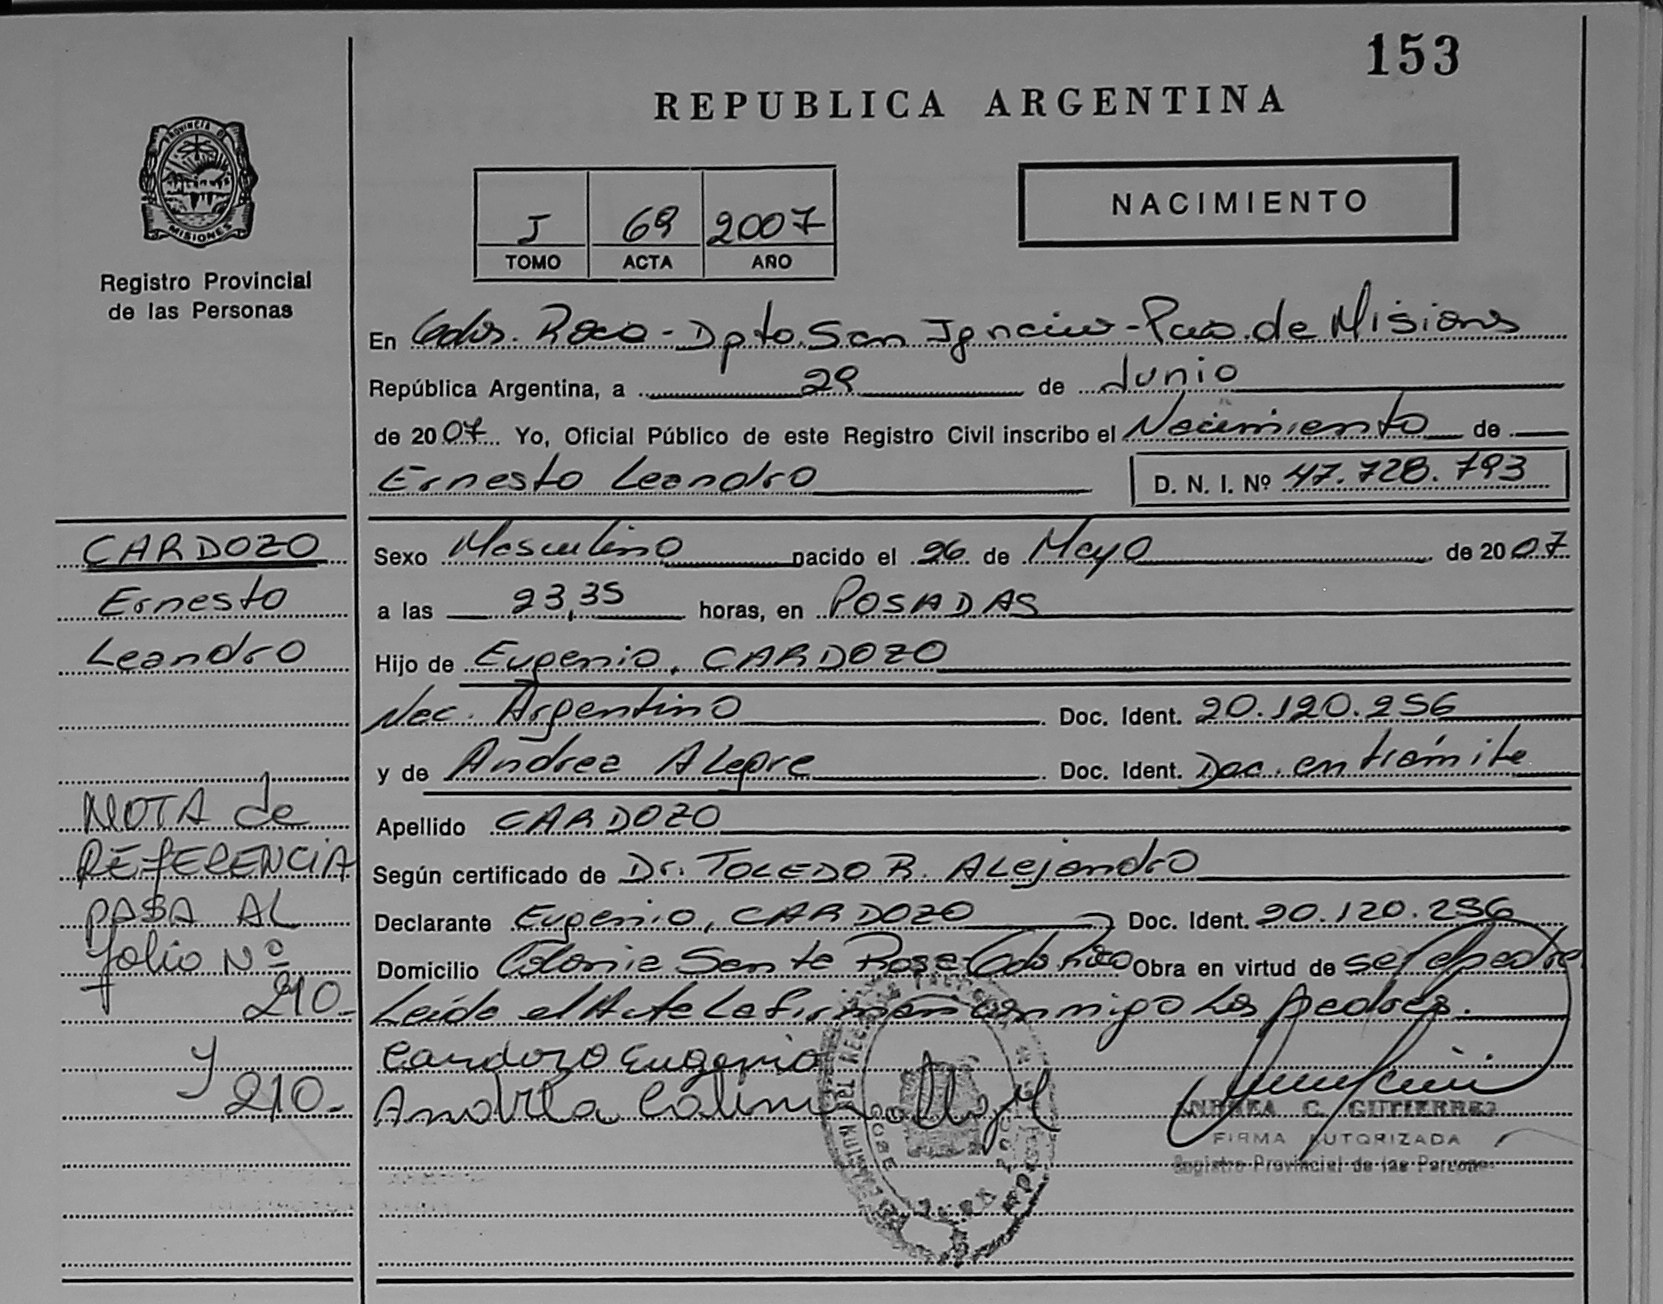 153
REPUBLICA ARGENTINA
PROVINCIA D
MISIONES
Registro Provincial
de las Personas
J 69 2007
TOMO ACTA AÑO
NACIMIENTO
En Gdor. Roca - Dpto. San Ignacio - Pcia. de Misiones
República Argentina, a 29 de Junio
de 2007 Yo, Oficial Público de este Registro Civil inscribo el Nacimiento de
Ernesto Leandro D. N. I. Nº 47.728.793
CARDOZO
Ernesto
Leandro
Sexo Masculino nacido el 26 de Mayo de 2007
a las 23,35 horas, en POSADAS
Hijo de Eugenio, CARDOZO
Nac. Argentino Doc. Ident. 20.120.256
y de Andrea ALegre Doc. Ident. Doc. en trámite
Apellido CARDOZO
Según certificado de Dr. TOLEDO R. ALejandro
Declarante Eugenio, CARDOZO Doc. Ident. 20.120.256
Domicilio Colonia Santa Rosa Obra en virtud de ser el padre
Leída el Acta La firman conmigo Los padres.
NOTA de
REFERENCIA
PASA AL
folio Nº
210-
y
210-
Cardozo Eugenio
Andrea
ANDREA C. GUTIERREZ
FIRMA AUTORIZADA
Registro Provincial de las Personas